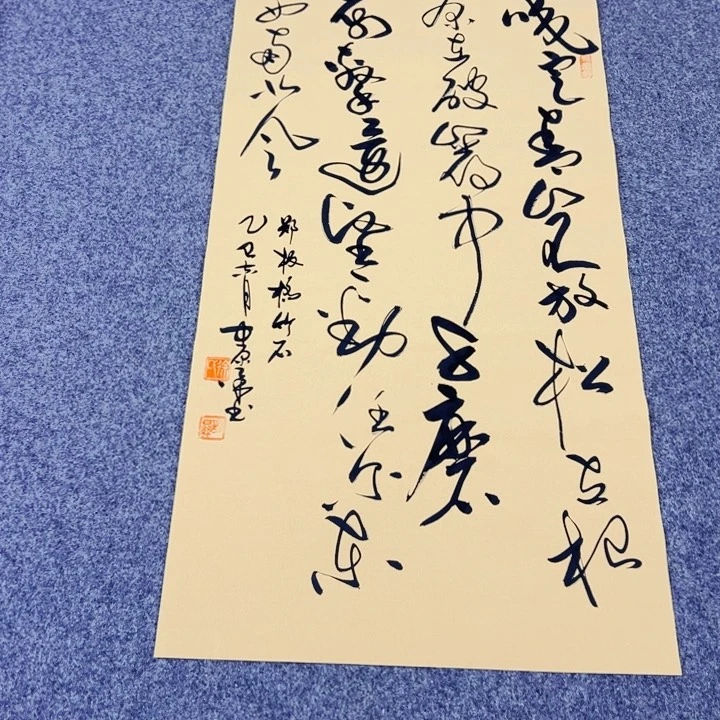 咬定青山不放松立根
原在破岩中千磨
萬擊還堅勁任尔东
西南北风
郑板橋竹石
乙巳六月